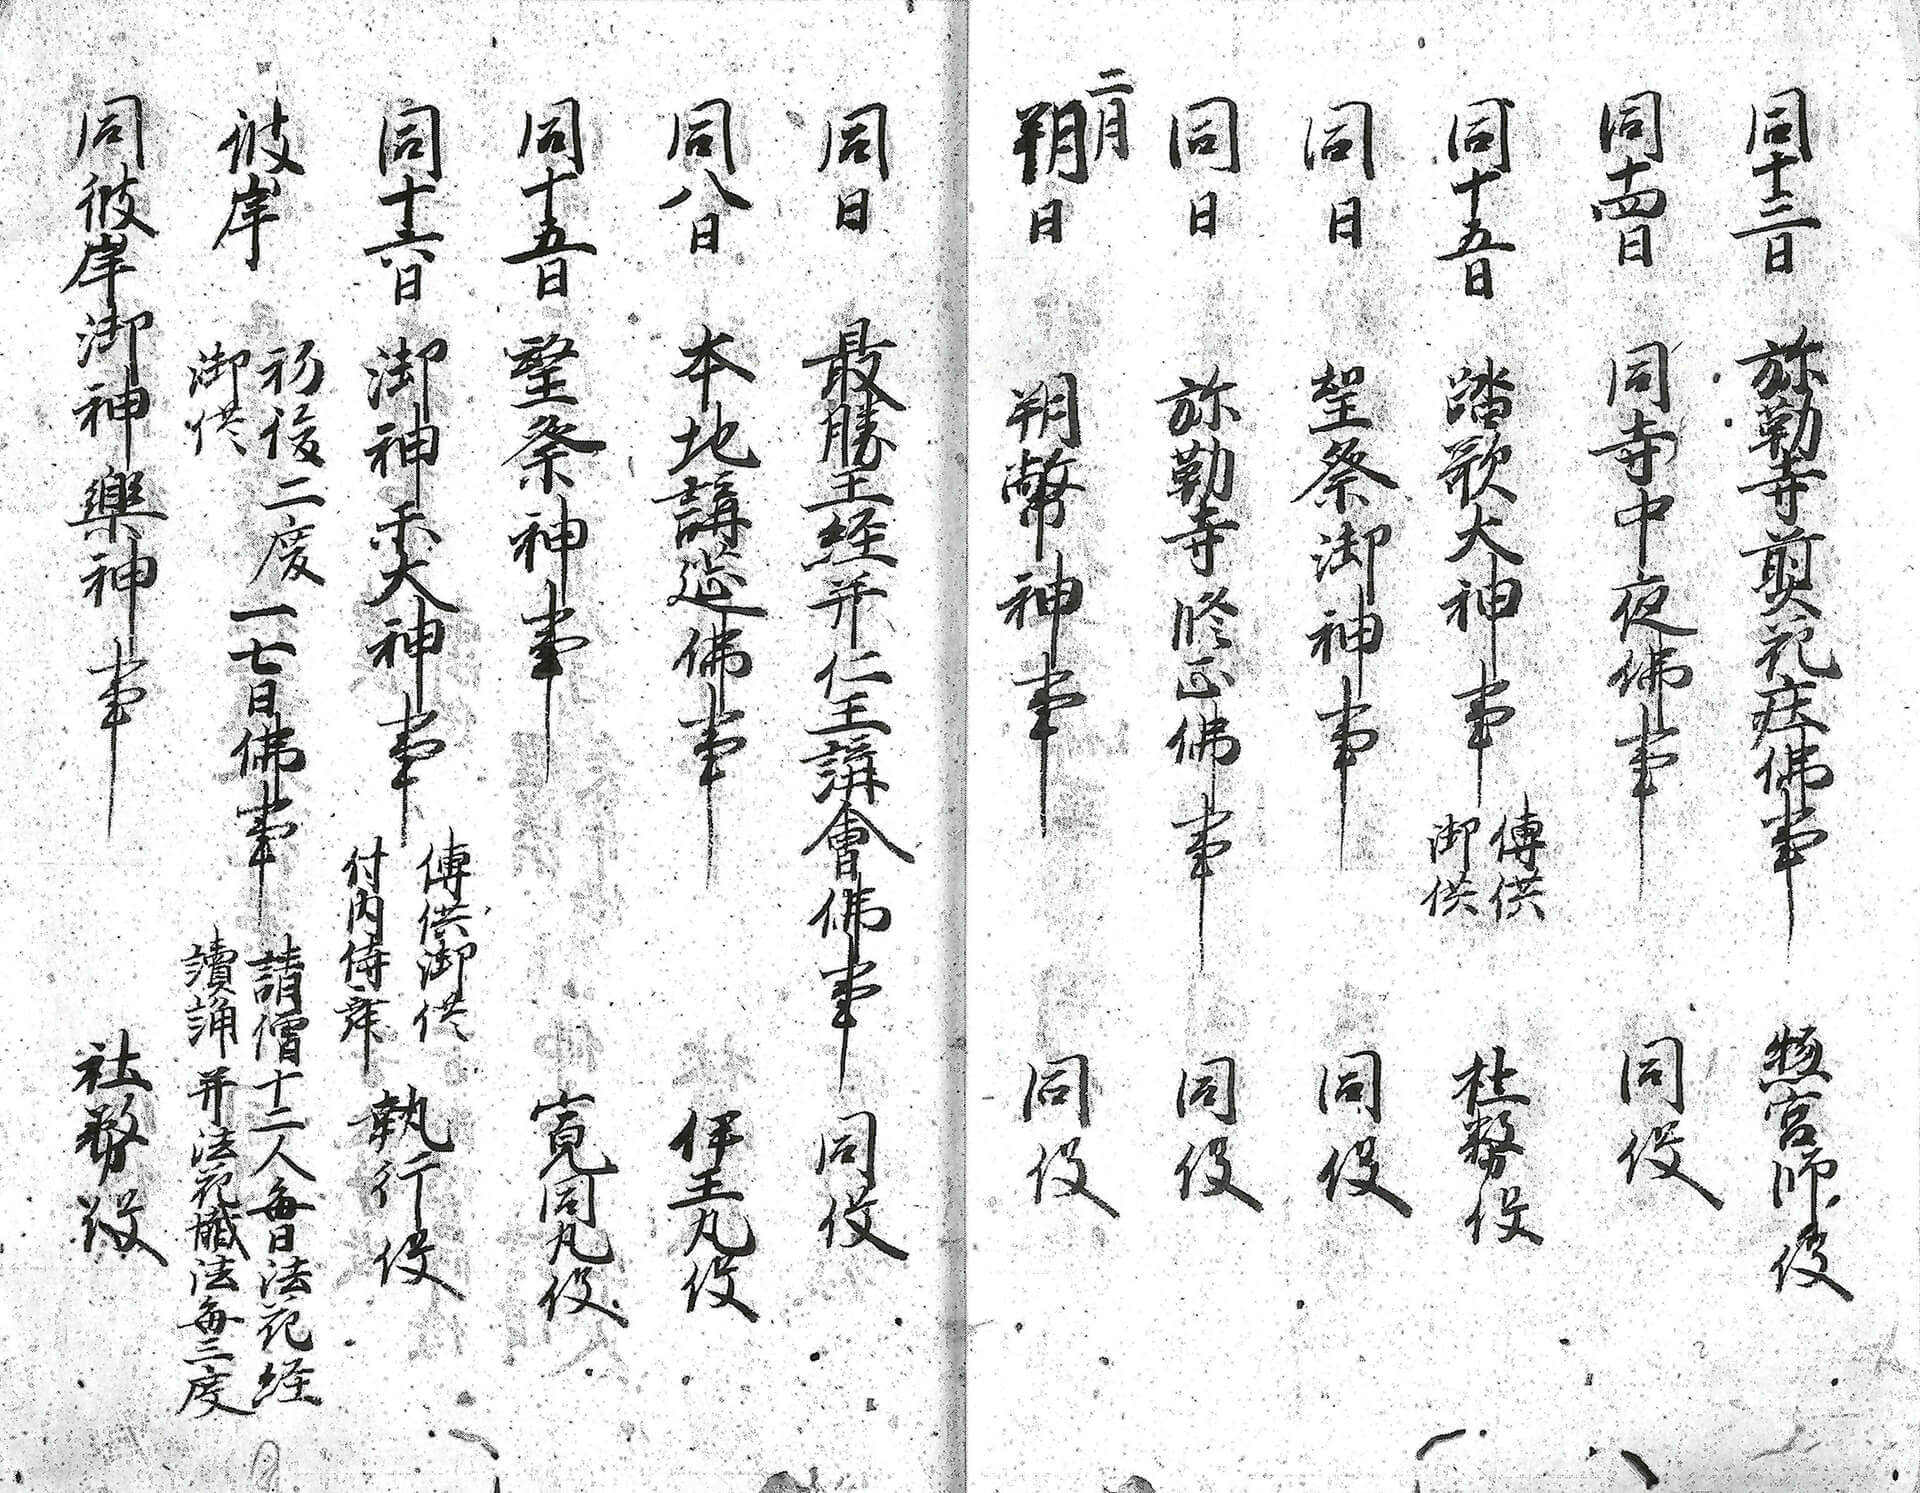 同十三日 弥勒寺剪花庄佛事 惣宮師役
同十四日 同寺中夜佛事 同役
同十五日 踏歌大神事 傳供御供 社務役
同日 聖祭御神事 同役
同日 弥勒寺修正佛事 同役
二月朔日 朔幣神事 同役
同日 最勝王経并仁王講會佛事 同役
同八日 本地講筵佛事 伊王丸役
同十五日 聖祭神事 寛同丸役
同十六日 御神樂大神事 傳供御供 付内侍舞 執行役
彼岸 初後二度御供 一七日佛事 請僧十二人毎日法花経 讀誦并法花懺法毎三度
同彼岸御神樂神事 社務役